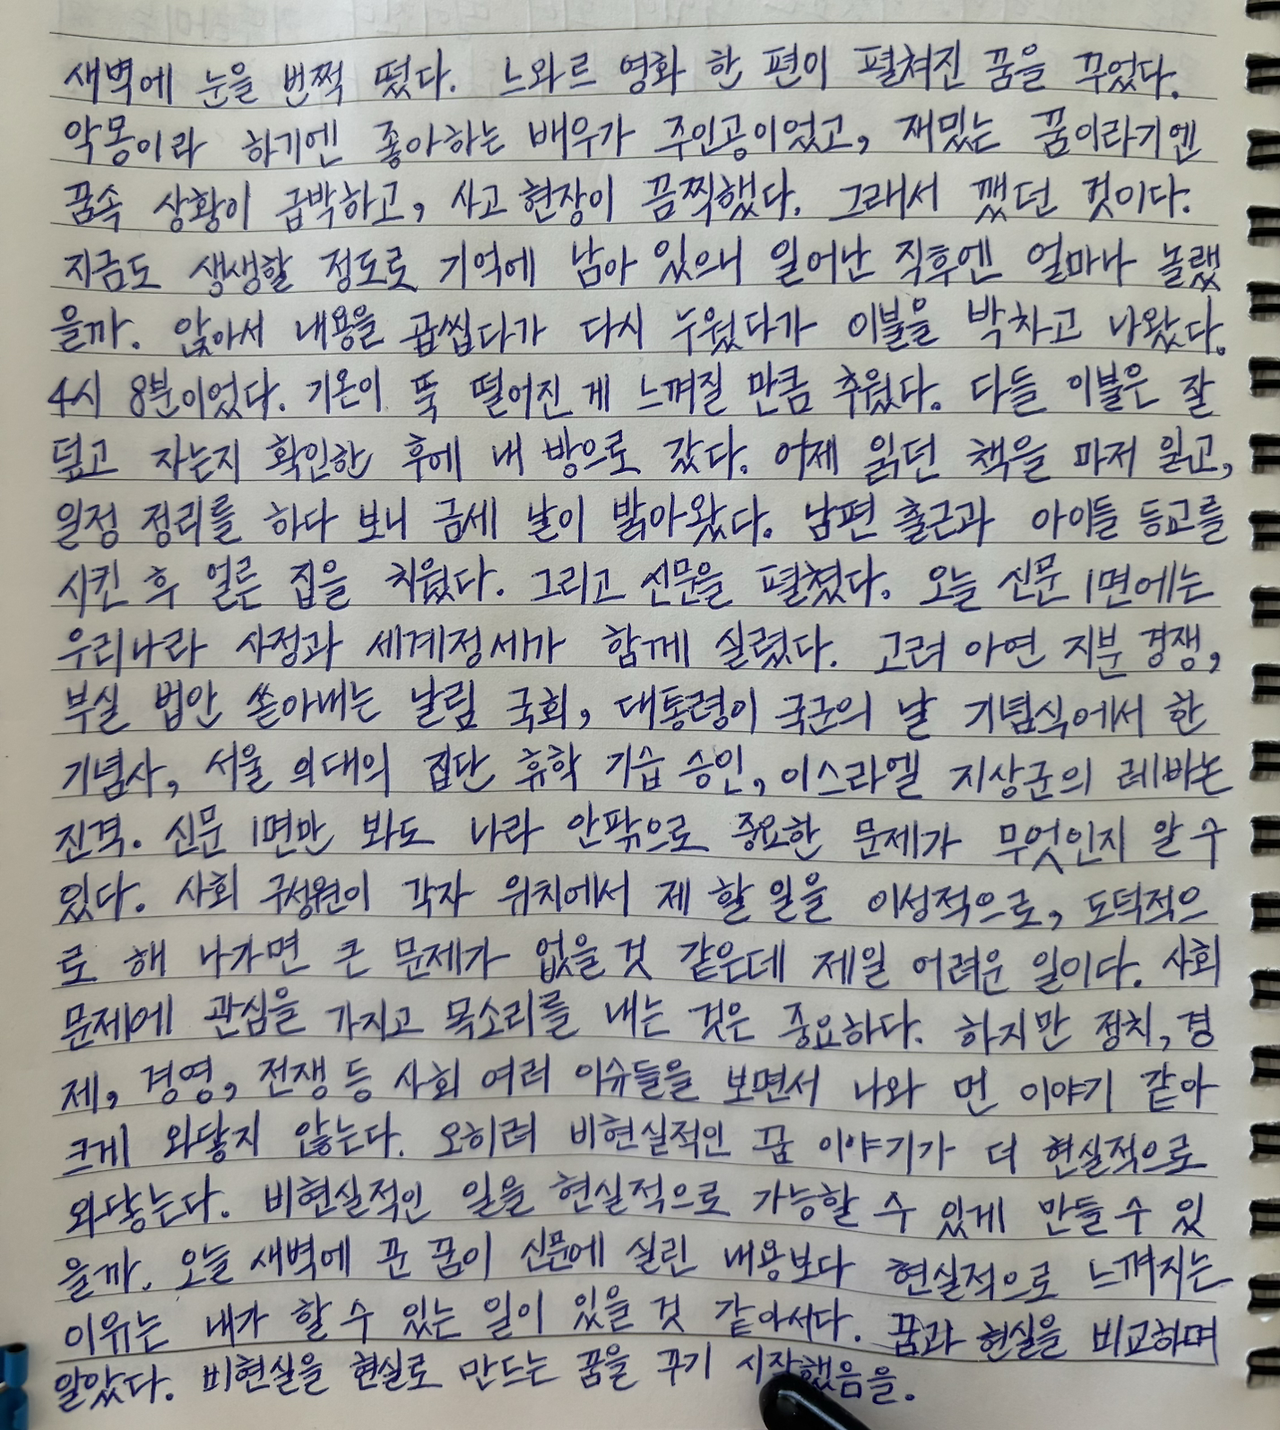 새벽에 눈을 번쩍 떴다. 느와르 영화 한 편이 펼쳐진 꿈을 꾸었다.
악몽이라 하기엔 좋아하는 배우가 주인공이었고, 재밌는 꿈이라기엔
꿈속 상황이 급박하고, 사고 현장이 끔찍했다. 그래서 깼던 것이다.
지금도 생생할 정도로 기억에 남아 있으니 일어난 직후엔 얼마나 놀랬
을까. 앉아서 내용을 곱씹다가 다시 누웠다가 이불을 박차고 나왔다.
4시 8분이었다. 기온이 뚝 떨어진 게 느껴질 만큼 추웠다. 다들 이불은 잘
덮고 자는지 확인한 후에 내 방으로 갔다. 어제 읽던 책을 마저 읽고,
일정 정리를 하다 보니 금세 날이 밝아왔다. 남편 출근과 아이들 등교를
시킨 후 얼른 집을 치웠다. 그리고 신문을 펼쳤다. 오늘 신문 1면에는
우리나라 사정과 세계정세가 함께 실렸다. 고려 아연 지분 경쟁,
부실 법안 쏟아내는 날림 국회, 대통령이 국군의 날 기념식에서 한
기념사, 서울 의대의 집단 휴학 기습 승인, 이스라엘 지상군의 레바논
진격. 신문 1면만 봐도 나라 안팎으로 중요한 문제가 무엇인지 알 수
있다. 사회 구성원이 각자 위치에서 제 할 일을 이성적으로, 도덕적으
로 해 나가면 큰 문제가 없을 것 같은데 제일 어려운 일이다. 사회
문제에 관심을 가지고 목소리를 내는 것은 중요하다. 하지만 정치, 경
제, 경영, 전쟁 등 사회 여러 이슈들을 보면서 나와 먼 이야기 같아
크게 와닿지 않는다. 오히려 비현실적인 꿈 이야기가 더 현실적으로
와닿는다. 비현실적인 일을 현실적으로 가능할 수 있게 만들 수 있
을까. 오늘 새벽에 꾼 꿈이 신문에 실린 내용보다 현실적으로 느껴지는
이유는 내가 할 수 있는 일이 있을 것 같아서다. 꿈과 현실을 비교하며
알았다. 비현실을 현실로 만드는 꿈을 꾸기 시작했음을.